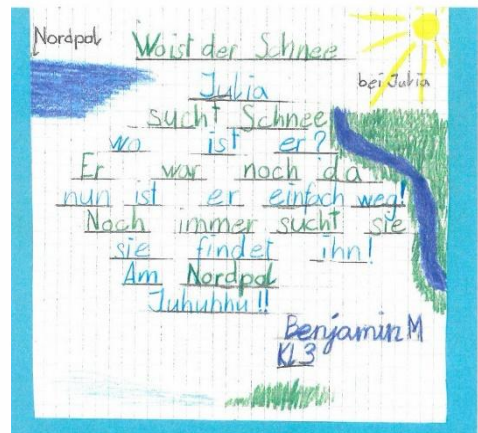 Nordpol
Wo ist der Schnee
bei Julia
Julia
sucht Schnee
wo ist er?
Er war noch da
nun ist er einfach weg!
Noch immer sucht sie
sie findet ihn!
Am Nordpol
Juhuhhu!!
Benjamin M
Kl.3